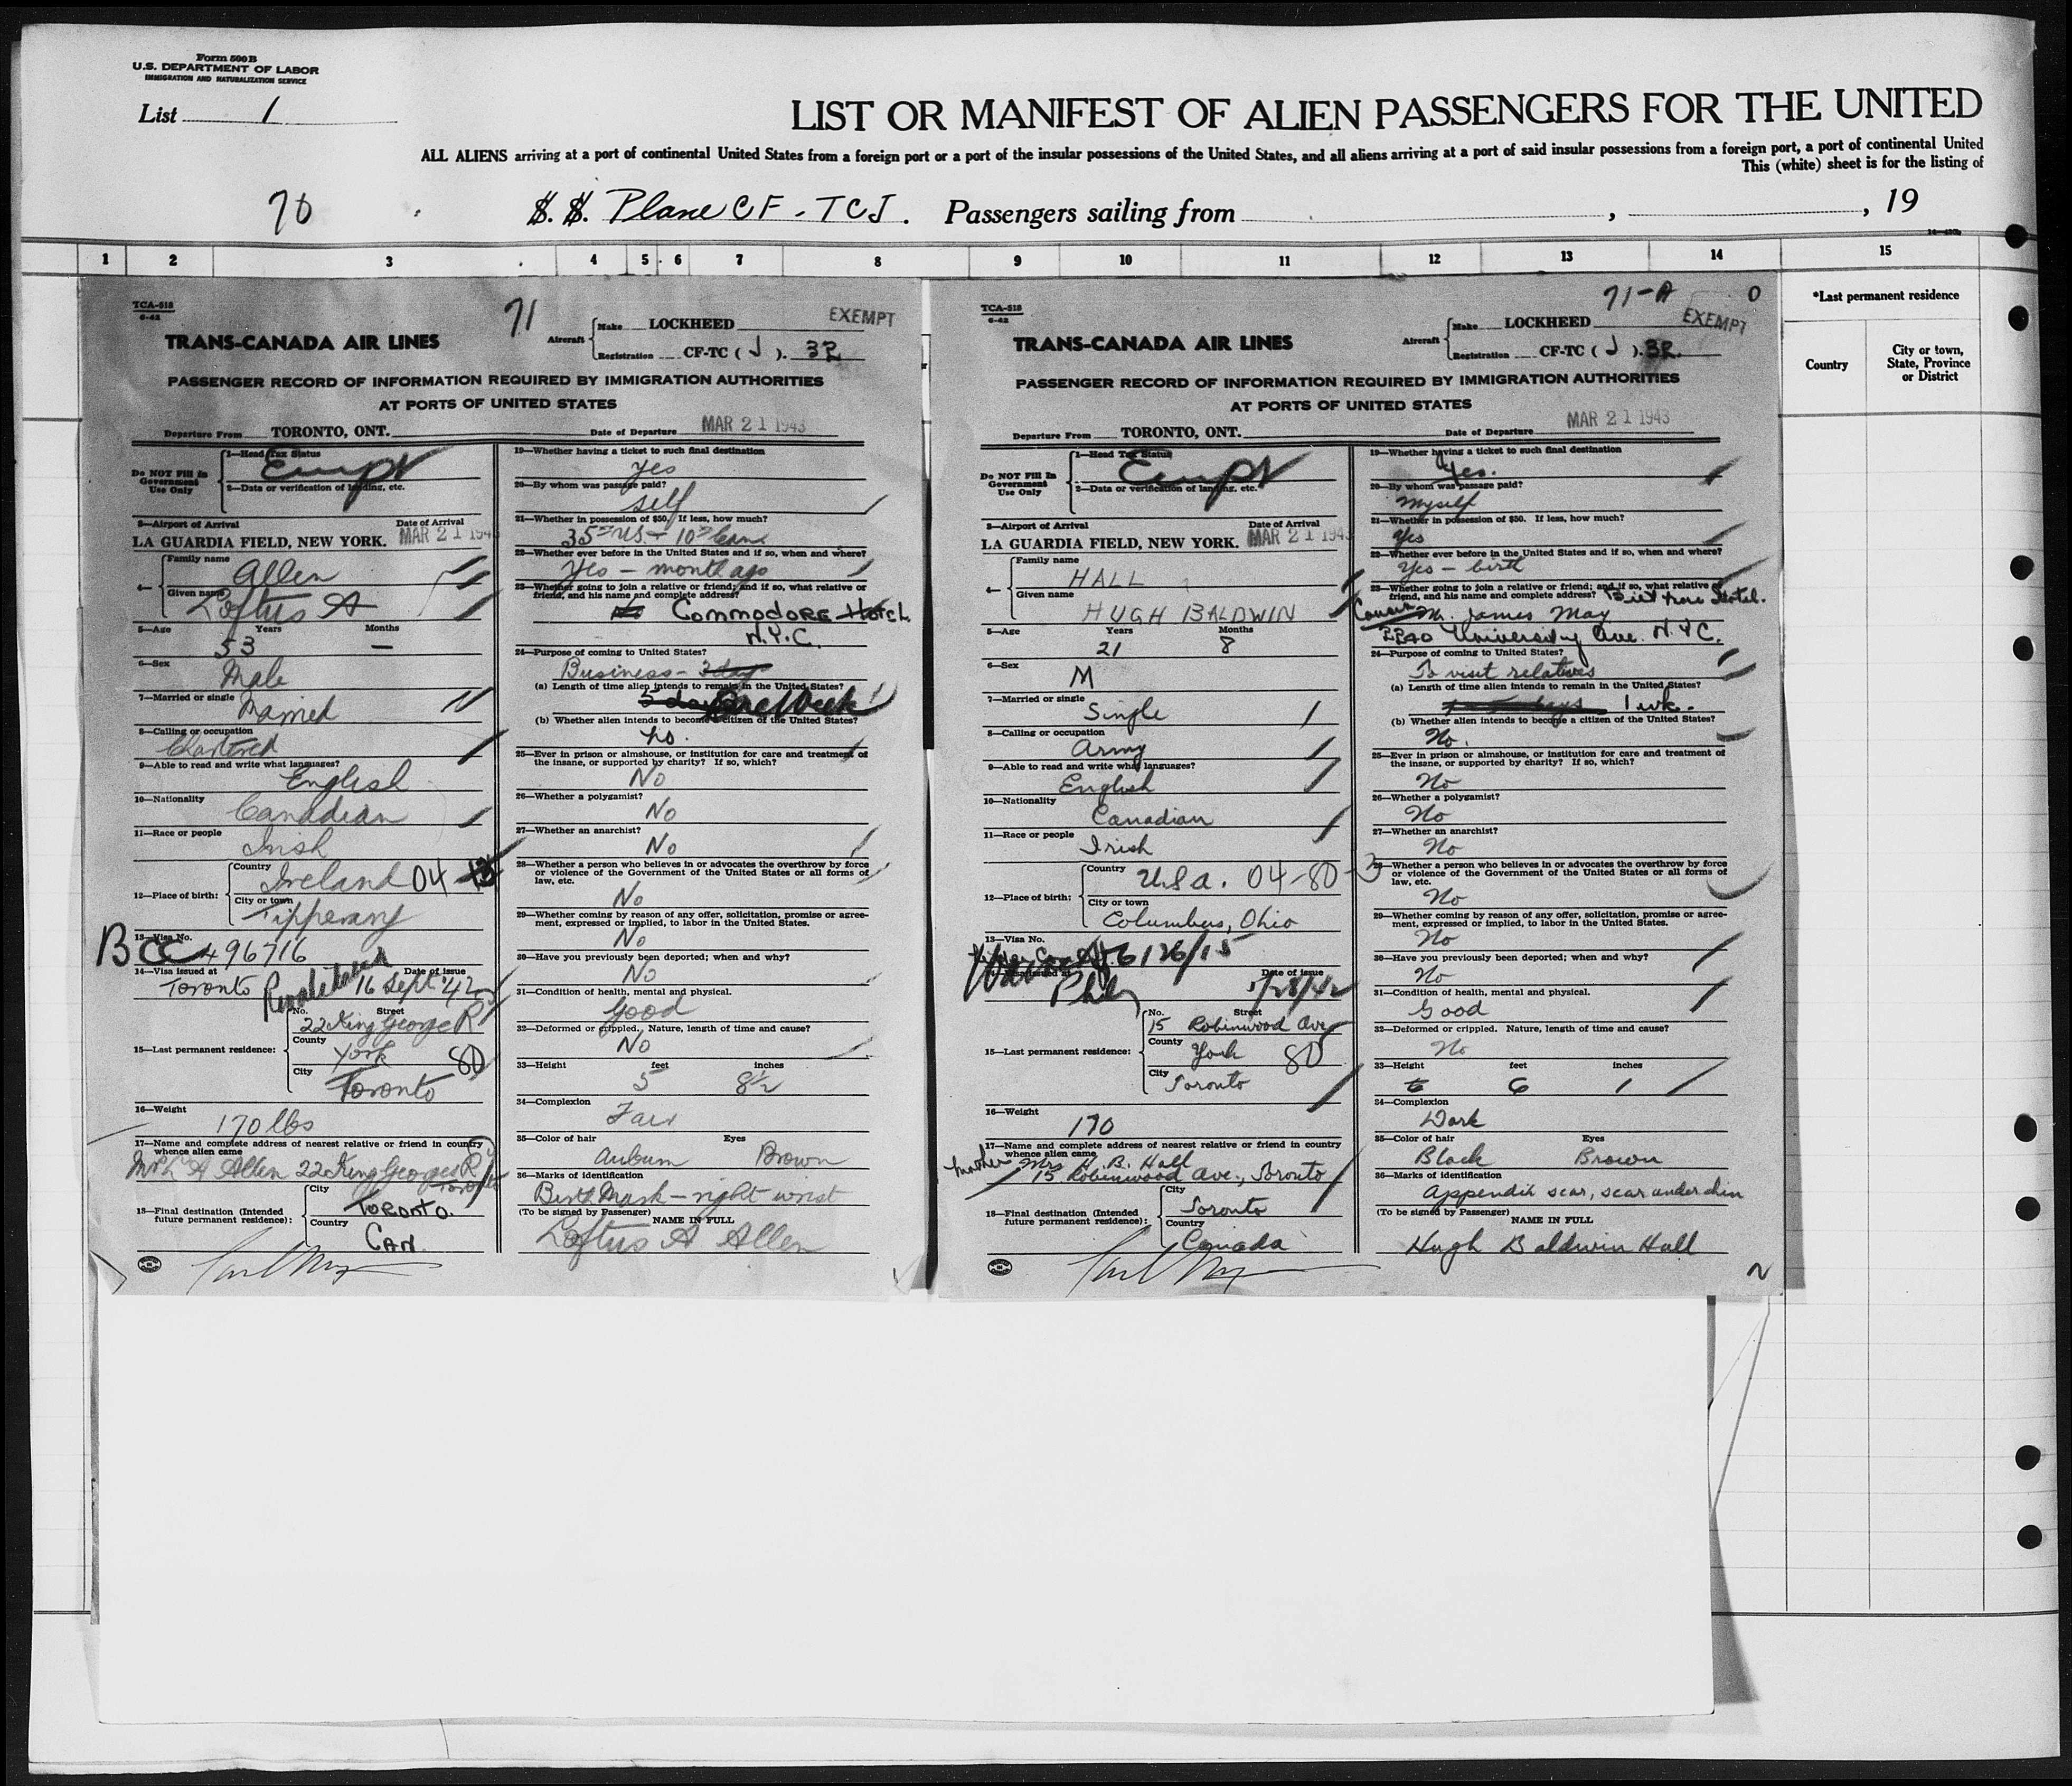 Form 500B
U.S. DEPARTMENT OF LABOR
IMMIGRATION AND NATURALIZATION SERVICE
List 1
LIST OR MANIFEST OF ALIEN PASSENGERS FOR THE UNITED
ALL ALIENS arriving at a port of continental United States from a foreign port or a port of the insular possessions of the United States, and all aliens arriving at a port of said insular possessions from a foreign port, a port of continental United
This (white) sheet is for the listing of
70
S. S. Plane CF-TCJ. Passengers sailing from , , 19
1 2 3 4 5 6 7 8 9 10 11 12 13 14 15
*Last permanent residence
Country
City or town, State, Province or District
TCA-518
6-42
71
EXEMPT
TRANS-CANADA AIR LINES
Aircraft
Make LOCKHEED
Registration CF-TC ( J ). 32
PASSENGER RECORD OF INFORMATION REQUIRED BY IMMIGRATION AUTHORITIES
AT PORTS OF UNITED STATES
Departure From TORONTO, ONT. Date of Departure MAR 21 1943
Do NOT Fill In Government Use Only
1—Head Tax Status
2—Data or verification of landing, etc.
3—Airport of Arrival Date of Arrival
LA GUARDIA FIELD, NEW YORK. MAR 21 1943
4— Family name Allen
Given name Loftus A
5—Age Years 53 Months —
6—Sex Male
7—Married or single Married
8—Calling or occupation Chartered
9—Able to read and write what languages?
English
10—Nationality Canadian
11—Race or people Irish
12—Place of birth: Country Ireland 04
City or town Tipperary
13—Visa No.
BCC 496716
14—Visa issued at Toronto Date of issue 16 Sept '42
15—Last permanent residence:
No. Street
22 King George R
County York 80
City Toronto
16—Weight 170 lbs
17—Name and complete address of nearest relative or friend in country whence alien came
Mrs L A Allen 22 King Georges R Toronto
18—Final destination (Intended future permanent residence):
City Toronto.
Country Can.
19—Whether having a ticket to such final destination
Yes
20—By whom was passage paid?
self
21—Whether in possession of $50. If less, how much?
35 US — 10 Can
22—Whether ever before in the United States and if so, when and where?
Yes — month ago
23—Whether going to join a relative or friend; and if so, what relative or friend, and his name and complete address?
Commodore Hotel
N.Y.C.
24—Purpose of coming to United States?
Business — 3 day
(a) Length of time alien intends to remain in the United States?
5 days One Week
(b) Whether alien intends to become a citizen of the United States?
no.
25—Ever in prison or almshouse, or institution for care and treatment of the insane, or supported by charity? If so, which?
No
26—Whether a polygamist?
No
27—Whether an anarchist?
No
28—Whether a person who believes in or advocates the overthrow by force or violence of the Government of the United States or all forms of law, etc.
No
29—Whether coming by reason of any offer, solicitation, promise or agreement, expressed or implied, to labor in the United States.
No
30—Have you previously been deported; when and why?
No
31—Condition of health, mental and physical.
Good
32—Deformed or crippled. Nature, length of time and cause?
No
33—Height feet 5 inches 8½
34—Complexion Fair
35—Color of hair Auburn Eyes Brown
36—Marks of identification
Birth Mark — right wrist
(To be signed by Passenger) NAME IN FULL
Loftus A Allen
TCA-518
6-42
71-A
0
EXEMPT
TRANS-CANADA AIR LINES
Aircraft
Make LOCKHEED
Registration CF-TC ( J ). 32.
PASSENGER RECORD OF INFORMATION REQUIRED BY IMMIGRATION AUTHORITIES
AT PORTS OF UNITED STATES
Departure From TORONTO, ONT. Date of Departure MAR 21 1943
Do NOT Fill In Government Use Only
1—Head Tax Status
2—Data or verification of landing, etc.
3—Airport of Arrival Date of Arrival
LA GUARDIA FIELD, NEW YORK. MAR 21 1943
4— Family name HALL
Given name HUGH BALDWIN
5—Age Years 21 Months 8
6—Sex M
7—Married or single Single
8—Calling or occupation Army
9—Able to read and write what languages?
English
10—Nationality Canadian
11—Race or people Irish
12—Place of birth: Country U.S.A. 04-80-3
City or town Columbus, Ohio
13—Visa No.
6126/15
14—Visa issued at Date of issue 5/28/42
15—Last permanent residence:
No. Street
15 Robinwood Ave
County York 80
City Toronto
16—Weight 170
17—Name and complete address of nearest relative or friend in country whence alien came
mother Mrs H. B. Hall
15 Robinwood Ave., Toronto
18—Final destination (Intended future permanent residence):
City Toronto
Country Canada
19—Whether having a ticket to such final destination
Yes.
20—By whom was passage paid?
Myself
21—Whether in possession of $50. If less, how much?
Yes
22—Whether ever before in the United States and if so, when and where?
Yes — birth
23—Whether going to join a relative or friend; and if so, what relative or friend, and his name and complete address? Biltmore Hotel.
Cousin Mr. James May
2240 University Ave. N.Y.C.
24—Purpose of coming to United States?
To visit relatives
(a) Length of time alien intends to remain in the United States?
1 wk.
(b) Whether alien intends to become a citizen of the United States?
No.
25—Ever in prison or almshouse, or institution for care and treatment of the insane, or supported by charity? If so, which?
No
26—Whether a polygamist?
No
27—Whether an anarchist?
No
28—Whether a person who believes in or advocates the overthrow by force or violence of the Government of the United States or all forms of law, etc.
No
29—Whether coming by reason of any offer, solicitation, promise or agreement, expressed or implied, to labor in the United States.
No
30—Have you previously been deported; when and why?
No
31—Condition of health, mental and physical.
Good
32—Deformed or crippled. Nature, length of time and cause?
No
33—Height feet 6 inches 1
34—Complexion Dark
35—Color of hair Black Eyes Brown
36—Marks of identification
Appendix scar, scar under chin
(To be signed by Passenger) NAME IN FULL
Hugh Baldwin Hall